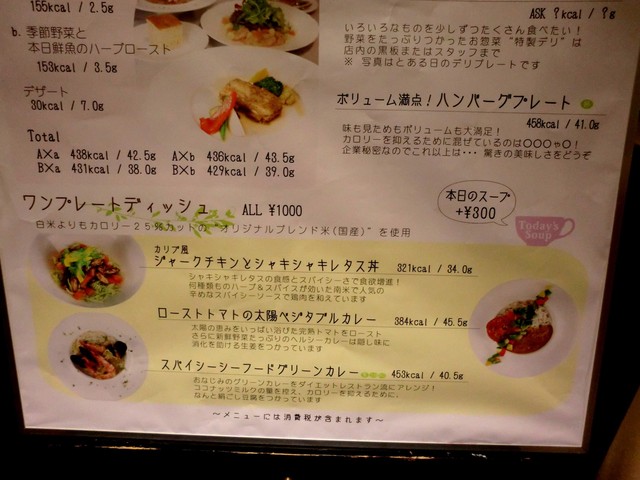 155kcal / 2.5g
b. 季節野菜と
本日鮮魚のハーブロースト
153kcal / 3.5g
デザート
30kcal / 7.0g
Total
A×a 438kcal / 42.5g A×b 436kcal / 43.5g
B×a 431kcal / 38.0g B×b 429kcal / 39.0g
ASK ?kcal / ?g
いろいろなものを少しずつたくさん食べたい！
野菜をたっぷりつかったお惣菜“特製デリ”は
店内の黒板またはスタッフまで
※ 写真はとある日のデリプレートです
ボリューム満点！ハンバーグプレート
458kcal / 41.0g
味も見ためもボリュームも大満足！
カロリーを抑えるために混ぜているのは〇〇〇や〇！
企業秘密なのでこれ以上は・・・ 驚きの美味しさをどうぞ
ワンプレートディッシュ ALL ¥1000
白米よりもカロリー２５％カットの“オリジナルブレンド米(国産)”を使用
本日のスープ
+¥300
Today's
Soup
カリブ風
ジャークチキンとシャキシャキレタス丼 321kcal / 34.0g
シャキシャキレタスの食感とスパイシーさで食欲増進！
何種類ものハーブ＆スパイスが効いた南米で人気の
辛めなスパイシーソースで鶏肉を和えています
ローストトマトの太陽ベジタブルカレー 384kcal / 45.5g
太陽の恵みをいっぱい浴びた完熟トマトをロースト
さらに新鮮野菜たっぷりのヘルシーカレーは隠し味に
消化を助ける生姜をつかっています
スパイシーシーフードグリーンカレー 453kcal / 40.5g
おなじみのグリーンカレーをダイエットレストラン流にアレンジ！
ココナッツミルクの量を控え、カロリーを抑えるために、
なんと絹ごし豆腐をつかっています
～メニューには消費税が含まれます～